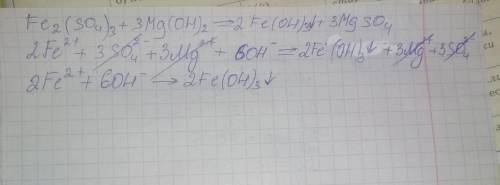 Fe₂(SO₄)₃ + 3Mg(OH)₂ = 2Fe(OH)₃↓ + 3MgSO₄
2Fe²⁺ + 3SO₄²⁻ + 3Mg²⁺ + 6OH⁻ = 2Fe(OH)₃↓ + 3Mg²⁺ + 3SO₄²⁻
2Fe²⁺ + 6OH⁻ → 2Fe(OH)₃↓